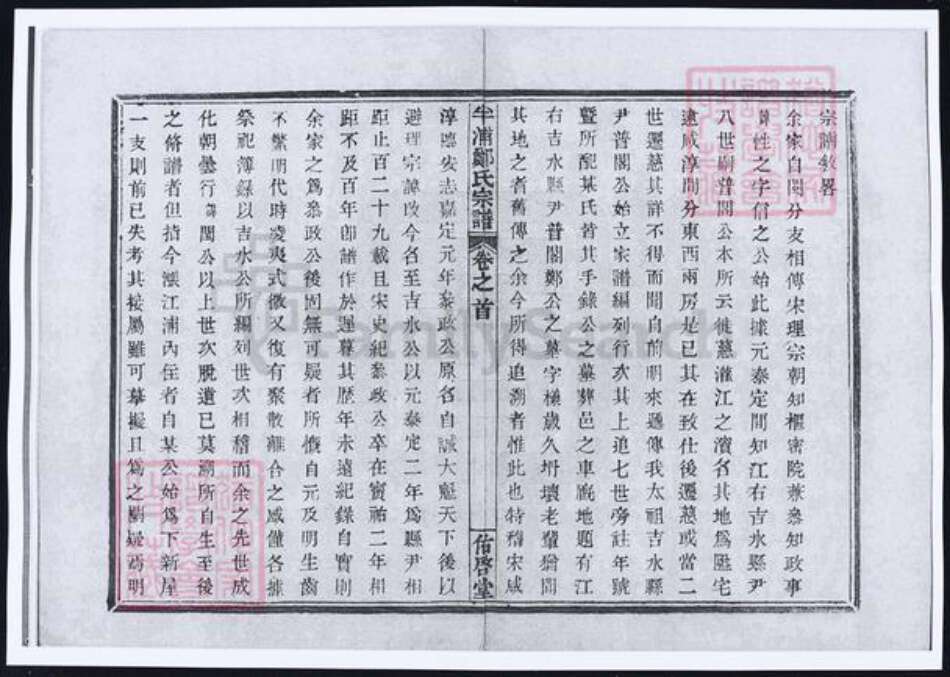 宗譜敘畧
余家自閩分支相傳宋理宗朝知樞密院兼叅知政事
性之字信之公始此據元泰定間知江右吉水縣尹
八世嗣普閣公本所云徙慈灌江之濱名其地為鄭宅
遠咸淳間分東西兩房是已其在致仕後遷慈或當二
世遷慈其詳不得而聞自前明來遞傳我太祖吉水縣
尹普閣公始立家譜編列行次其上追七世旁註年號
暨所配某氏皆其手錄公之墓葬邑之車廄地題有江
右吉水縣尹普閣鄭公之墓字樣歲久坍壞老輩猶聞
其地之者舊傳之余今所得追溯者惟此也特稽宋咸
半浦鄭氏宗譜 卷之首 佑啓堂
淳臨安志嘉定元年叅政公原名自誠大魁天下後以
避理宗諱改今名至吉水公以元泰定二年為縣尹相
距止百二十九載且宋史紀叅政公卒在寶祐二年相
距不及百年卽譜作於遲暮其歷年未遠紀錄自實則
余家之為叅政公後固無可疑者所慨自元及明生齒
不繁明代時凌夷式微又復有聚散離合之感僅各據
祭祀簿錄以吉水公所編列世次相稽而余之先世成
化朝曇行閩公以上世次脫遺已莫溯所自生至後
之脩譜者但指今漲江浦內住者自某公始為下新屋
一支則前已失考其接屬雖可摹擬且為之闕疑焉明